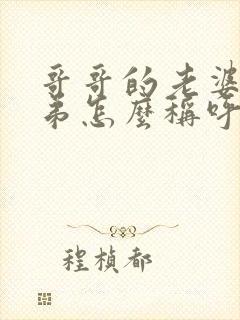 哥哥的老婆
弟怎麼稱呼
程楨都